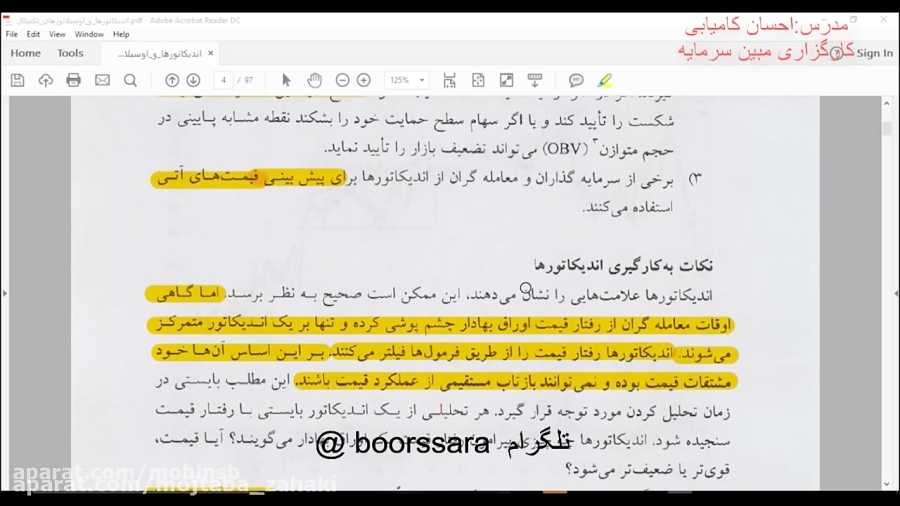 اندیکاتورها_و_اوسیلاتورهای_تکنیکال.pdf - Adobe Acrobat Reader DC
مدرس:احسان کامیابی
File Edit View Window Help
کارگزاری مبین سرمایه
Home Tools اندیکاتورها_و_اوسیلا... × Sign In
4 / 97 125%
شکست را تأیید کند و یا اگر سهام سطح حمایت خود را بشکند نقطه مشابه پایینی در
حجم متوازن۳ (OBV) می‌تواند تضعیف بازار را تأیید نماید.
۳) برخی از سرمایه گذاران و معامله گران از اندیکاتورها برای پیش بینی قیمت‌های آتی
استفاده می‌کنند.
نکات به‌کارگیری اندیکاتورها
اندیکاتورها علامت‌هایی را نشان می‌دهند، این ممکن است صحیح به نظر برسد. اما گاهی
اوقات معامله گران از رفتار قیمت اوراق بهادار چشم پوشی کرده و تنها بر یک اندیکاتور متمرکز
می‌شوند. اندیکاتورها رفتار قیمت را از طریق فرمول‌ها فیلتر می‌کنند. بر این اساس آن‌ها خود
مشتقات قیمت بوده و نمی‌توانند بازتاب مستقیمی از عملکرد قیمت باشند. این مطلب بایستی در
زمان تحلیل کردن مورد توجه قرار گیرد. هر تحلیلی از یک اندیکاتور بایستی با رفتار قیمت
سنجیده شود. اندیکاتورها بهادار می‌گویند؟ آیا قیمت،
تلگرام @ boorssara
قوی‌تر یا ضعیف‌تر می‌شود؟
aparat.com/mobinsb
aparat.com/mojtaba_zahaki